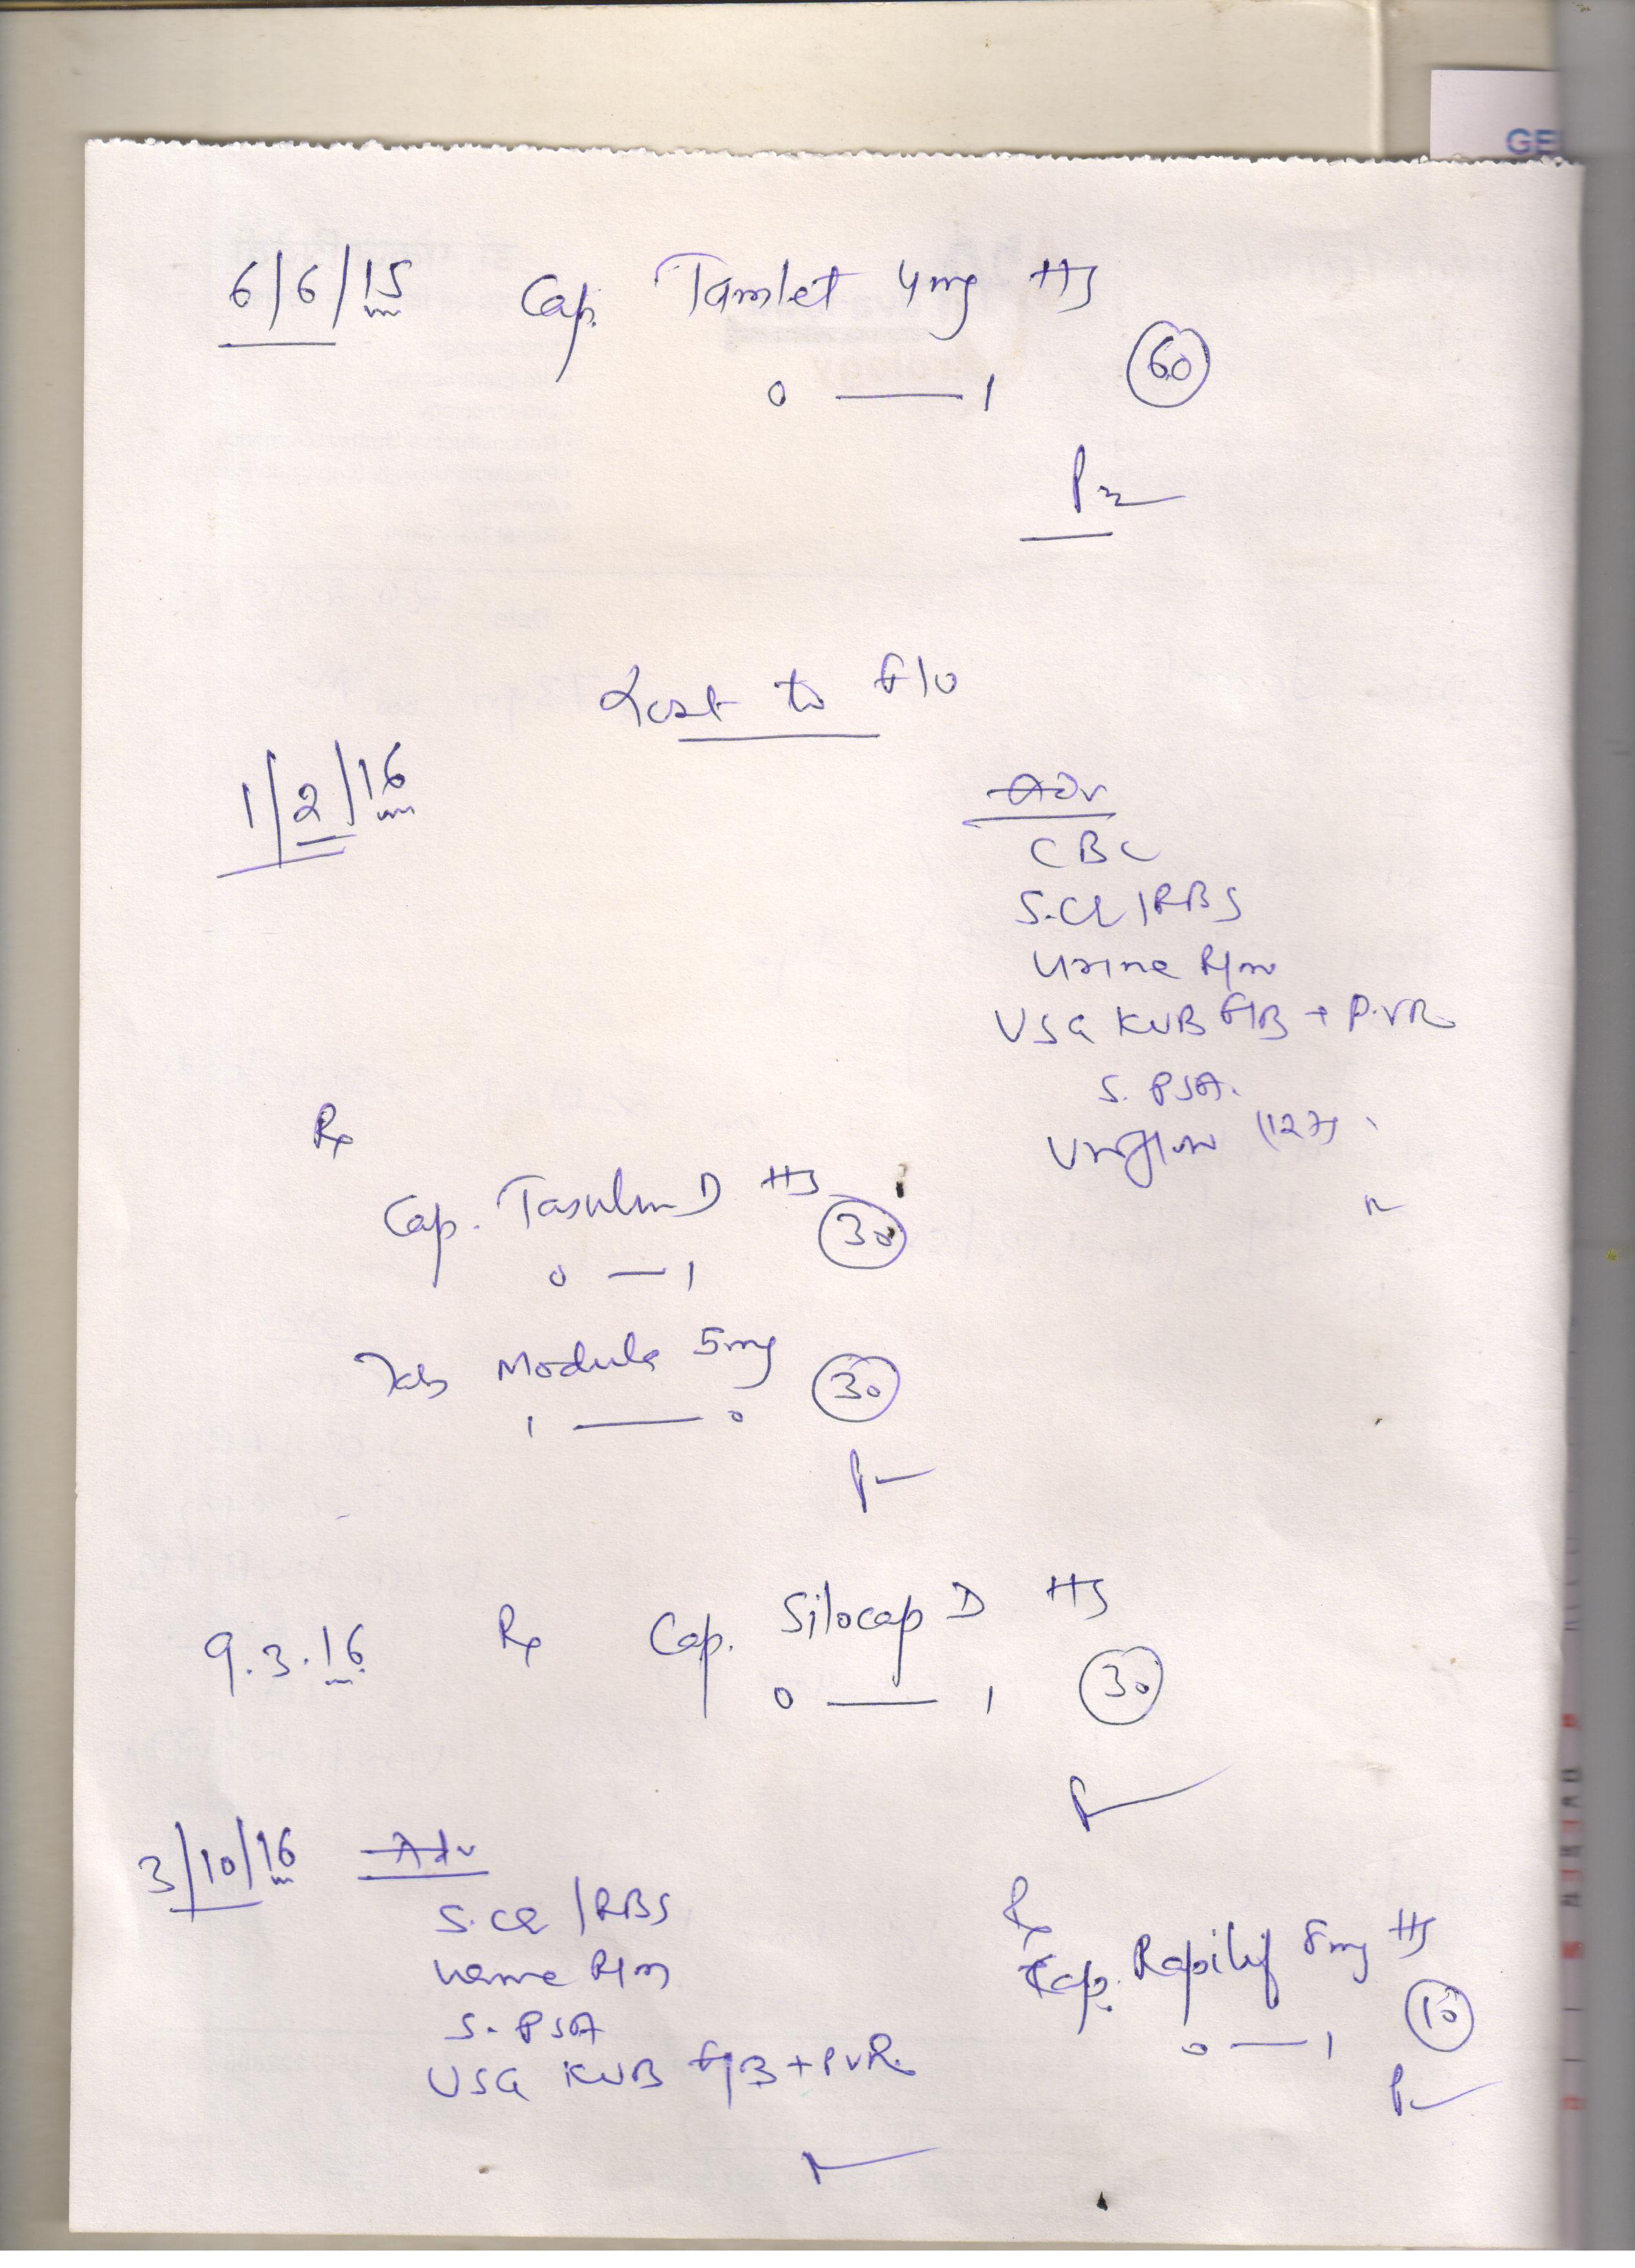 GE
6/6/15 Cap. Tamlet 4mg HS
0 — 1 (60)
Lost to f/u
1/2/16
Adv
CBC
S.Cr / RBS
Urine R/m
USG KUB F/B + P.VR
S. PSA.
Rx
Cap. Tasulin D HS (30)
0 — 1
Tab 5mg (30)
1 — 0
9.3.16 Rx Cap. Silocap D HS
0 — 1 (30)
3/10/16 Adv
S.Cr / RBS
Urine R/m
S. PSA
USG KUB F/B + PVR.
Rx
Cap. Rapilif 8mg HS
0 — 1 (10)